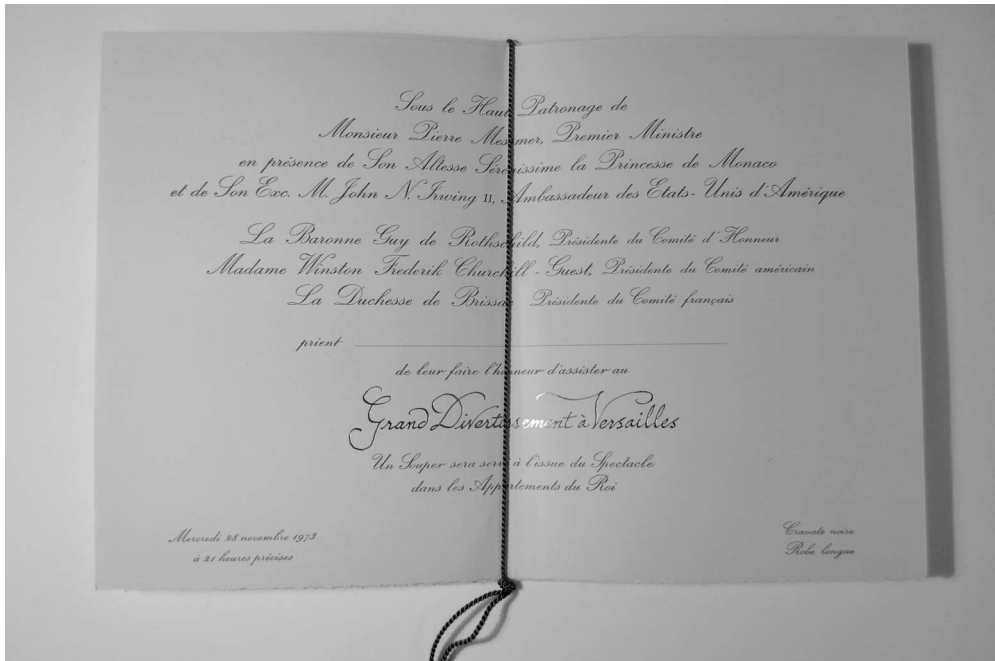 Sous le Haut Patronage de
Monsieur Pierre Messmer, Premier Ministre
en présence de Son Altesse Sérénissime la Princesse de Monaco
et de Son Exc. M. John N. Irwing II, Ambassadeur des Etats-Unis d'Amérique
La Baronne Guy de Rothschild, Présidente du Comité d'Honneur
Madame Winston Frederik Churchill-Guest, Présidente du Comité américain
La Duchesse de Brissac Présidente du Comité français
prient
de leur faire l'honneur d'assister au
Grand Divertissement à Versailles
Un Souper sera servi à l'issue du Spectacle
dans les Appartements du Roi
Mercredi 28 novembre 1973
à 21 heures précises
Cravate noire
Robe longue